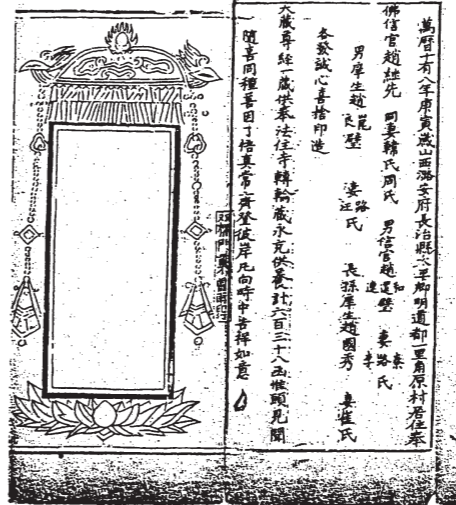 萬曆十有八年庚寅歲山西潞安府長治縣太平鄉明道都一里角原村居住奉
佛信官趙 先 同妻韓氏周氏 男信官趙 和 璧 妻路氏 秦 李
男庠生趙 崑 良 璧 妻路 汪氏 長孫庠生趙國秀 妻崔氏
各發誠心喜捨印造
大藏尊經一藏供奉法住寺轉輪藏永充供養計六百三十八函惟願見聞
隨喜同種善因了悟真常齊登彼岸凡向時中吉祥如意